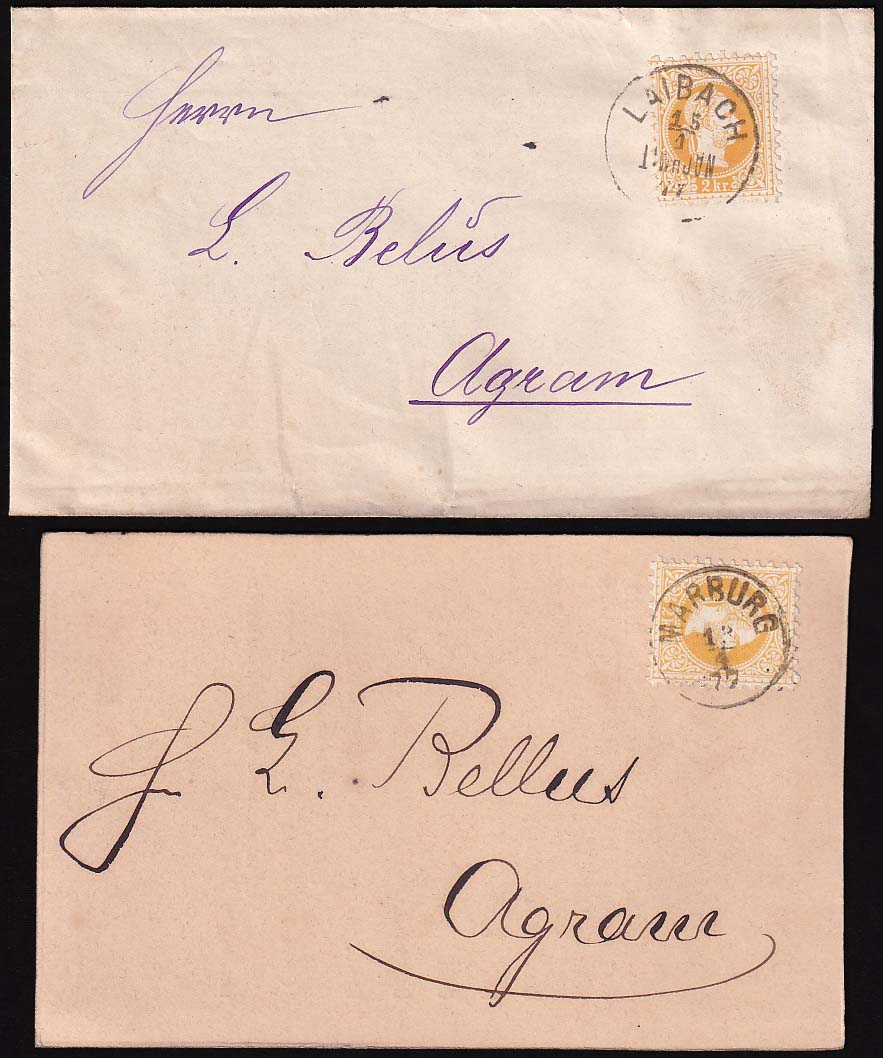 Herrn
LAIBACH
15
1
77
2 kr.
L. Belus
Agram
MARBURG
12
1
77
L. Bellus
Agram